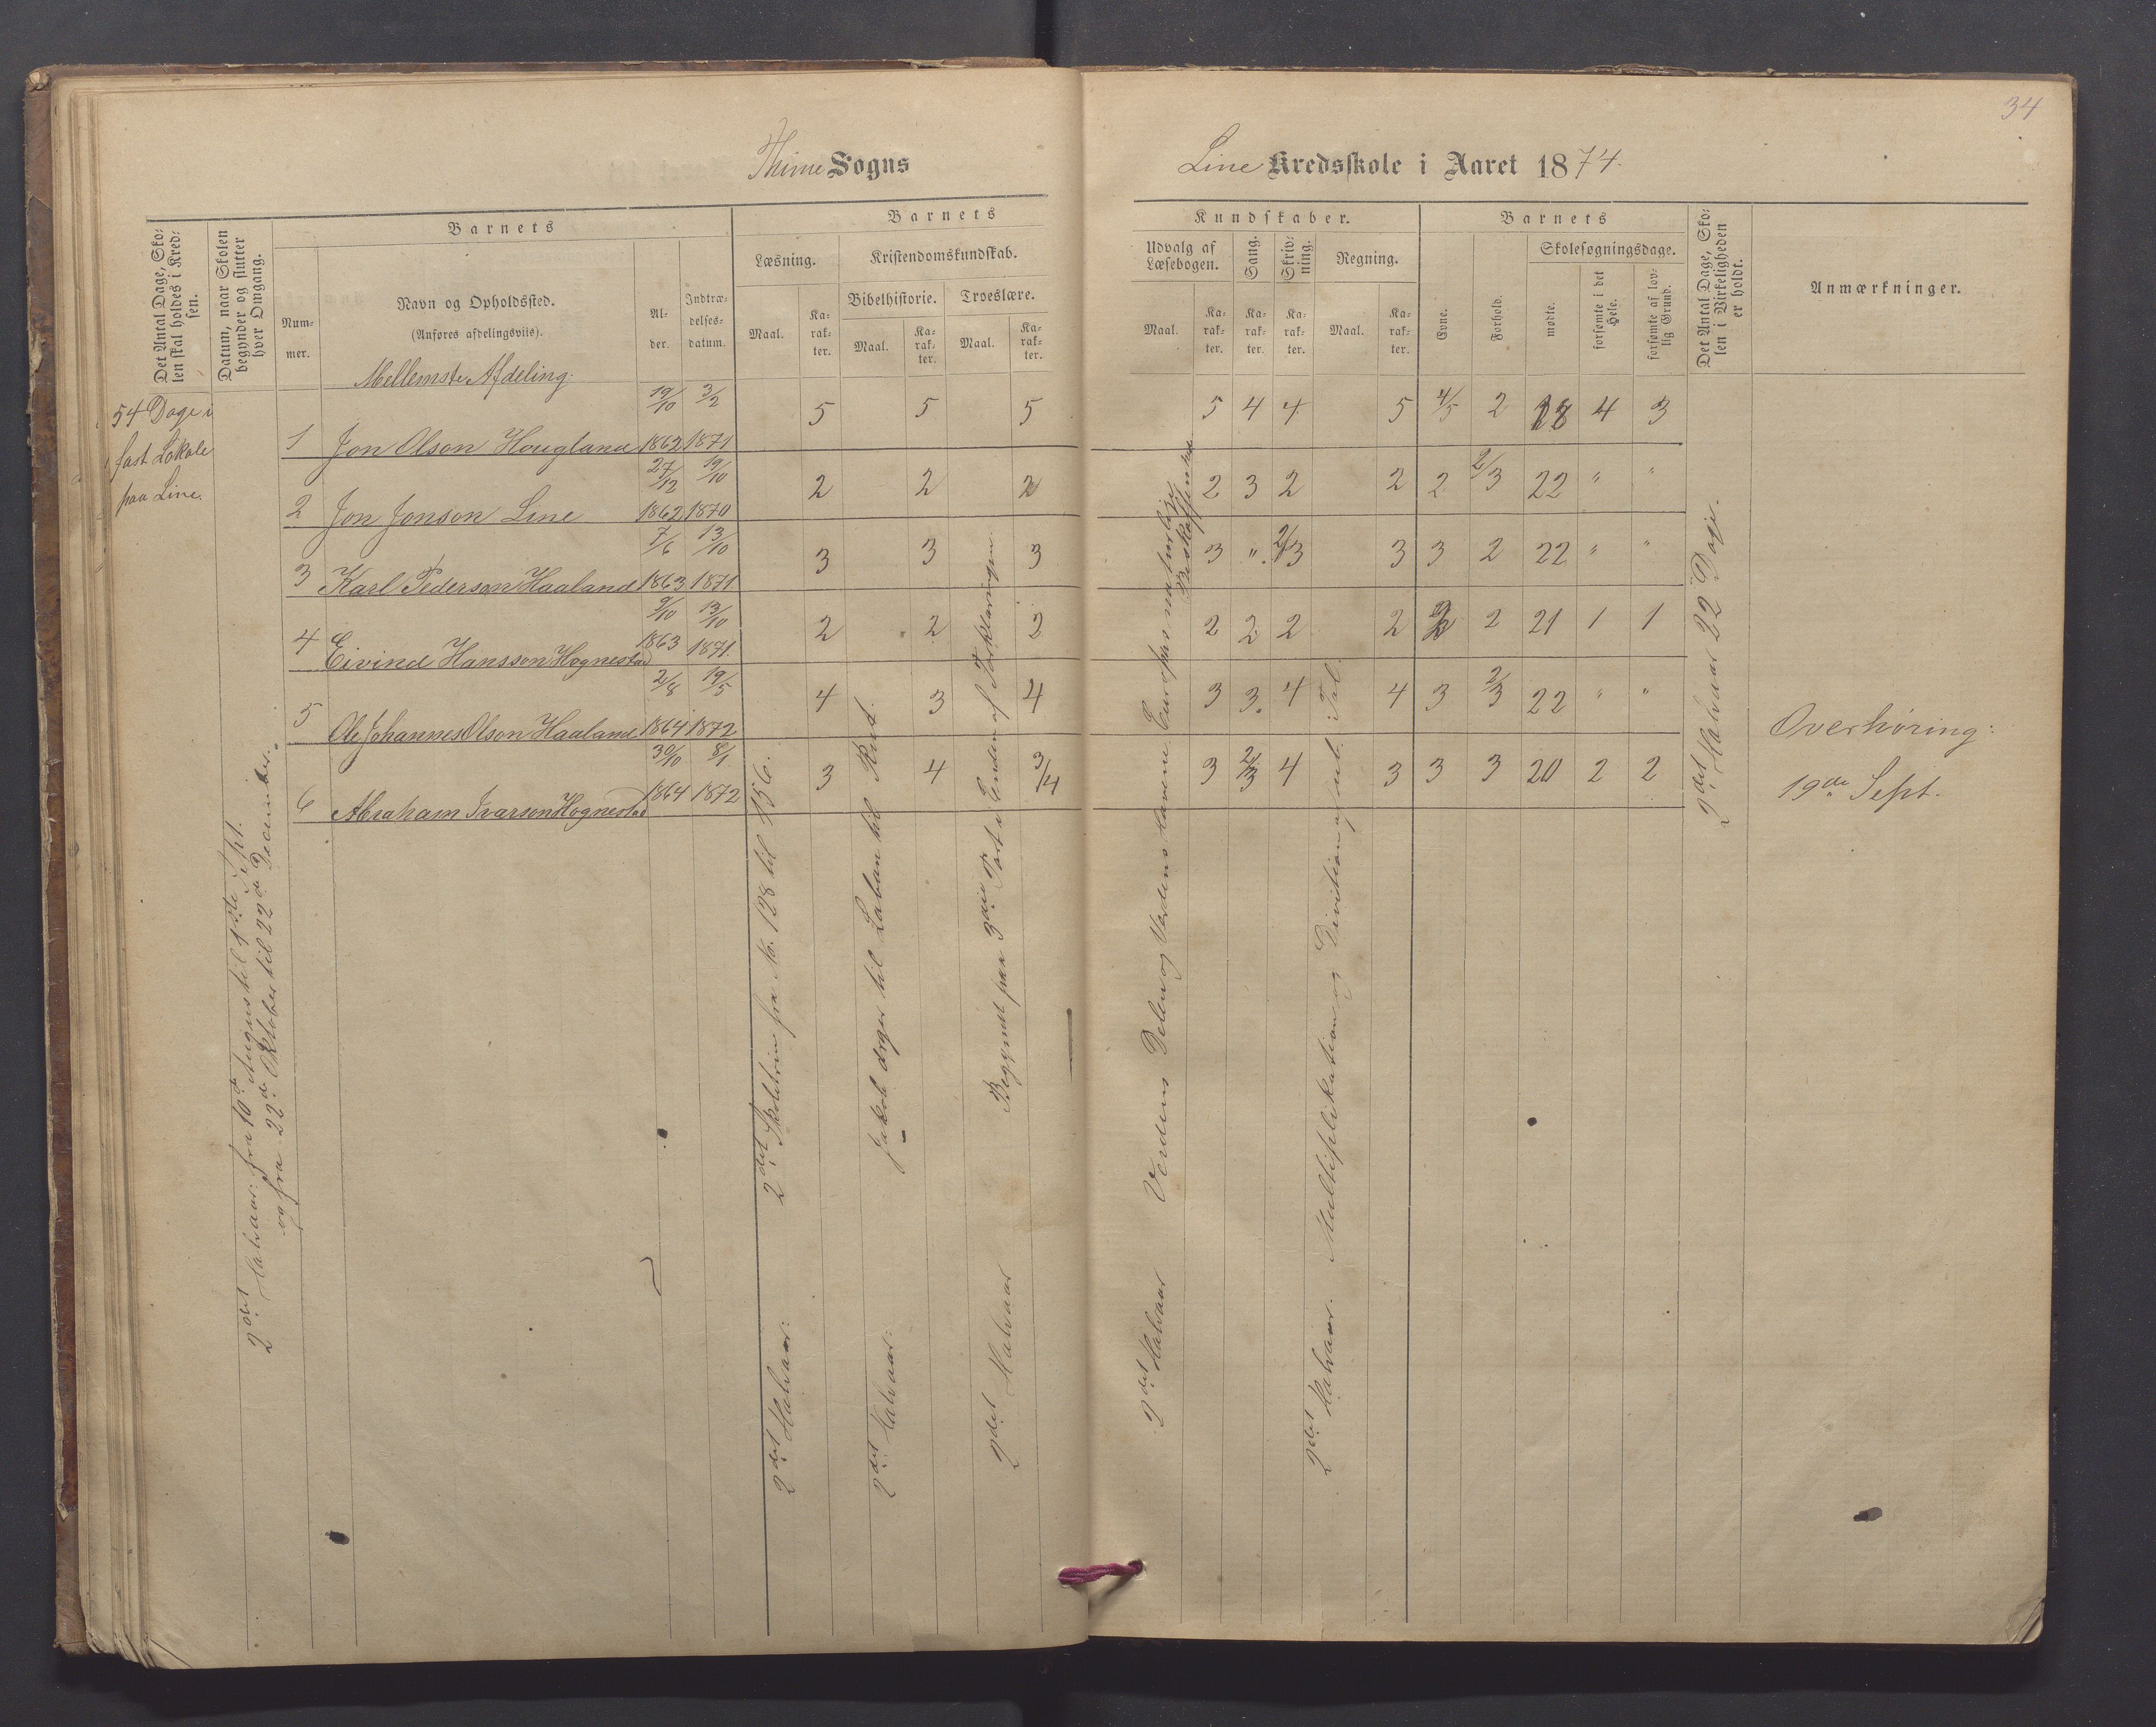 34
Thime Sogns
Line Kredsskole i Aaret 1874.
Det Antal Dage, Sko-
len skal holdes i Kred-
sen.
Datum, naar Skolen
begynder og slutter
hver Omgang.
Barnets
Num-
mer.
Navn og Opholdssted.
(Anføres afdelingsviis).
Al-
der.
Indtræ-
delses-
datum.
Barnets
Læsning.
Kristendomskundskab.
Bibelhistorie.
Troeslære.
Maal.
Ka-
rak-
ter.
Maal.
Ka-
rak-
ter.
Maal.
Ka-
rak-
ter.
Kundskaber.
Udvalg af
Læsebogen.
Sang.
Skriv-
ning.
Regning.
Maal.
Ka-
rak-
ter.
Ka-
rak-
ter.
Ka-
rak-
ter.
Maal.
Ka-
rak-
ter.
Barnets
Evne.
Forhold.
Skolesøgningsdage.
mødte.
forsømte i det
Hele.
forsømte af lov-
lig Grund.
Det Antal Dage, Sko-
len i Virkeligheden
er holdt.
Anmærkninger.
Mellemste Afdeling.
54 Dage i
fast Lokale
paa Line.
19/10 3/2 5 5 5 5 4 4 5 4/5 2 18 4 3
1 Jon Olson Hougland 1862 1871
27/12 19/10 2 2 2 2 3 2 2 2 2/3 22 " "
2 Jon Jonson Line 1862 1870
7/6 13/10 3 3 3 3 " 2/3 3 3 2 22 " "
3 Karl Pederson Haaland 1863 1871
9/10 13/10 2 2 2 2 2 2 2 2 21 1 1
4 Eivind Hansson Hognestad 1863 1871.
2/8 19/5 4 3 4 3 3 4 4 3 2/3 22 " "
5 Ole Johannes Olson Haaland 1864 1872
30/10 8/1 3 4 3/4 3 2/3 4 3 3 3 20 2 2
6 Abraham Ivarson Hognestad 1864 1872
2det Halvaar: fra 10de August til 1ste Sept.
og fra 22de Oktober til 22de December.
2det Halvaar: 2det Skoletrin fra No. 128 til 156.
2det Halvaar: Jakob drager til Laban til Rut.
2det Halvaar Begyndt paa 3die Part til Enden af Forklaringen.
2det Halvaar Verdens Dele og Verdens Havene. Europas naturlige
Beskaffenhed
2det Halvaar. Multiplikation og Division af ubt. Tal.
2det Halvaar 22 Dage.
Overhøring:
19de Sept.